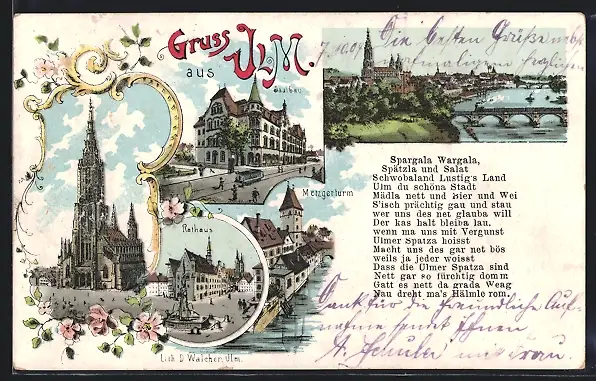 Gruss
aus
ULM.
7. 1909
Die besten Grüße nebst
Saalbau
Metzgerturm
Rathaus
Spargala Wargala,
Spätzla und Salat
Schwobaland Lustig's Land
Ulm du schöna Stadt
Mädla nett und Bier und Wei
S'isch prächtig gau und stau
wer uns des net glauba will
Der kas halt bleiba lau.
wenn ma uns mit Vergunst
Ulmer Spatza hoisst
Macht uns des gar net bös
weils ja jeder woisst
Dass die Ulmer Spatza sind
Nett gar so fürchtig domm
Gatt es nett da grada Weag
Nau dreht ma's Hälmle rom.
Dank für die freundliche Auf-
nahme sendet Ihnen
A. Schuler mit Frau.
Lith. D. Walcher, Ulm.